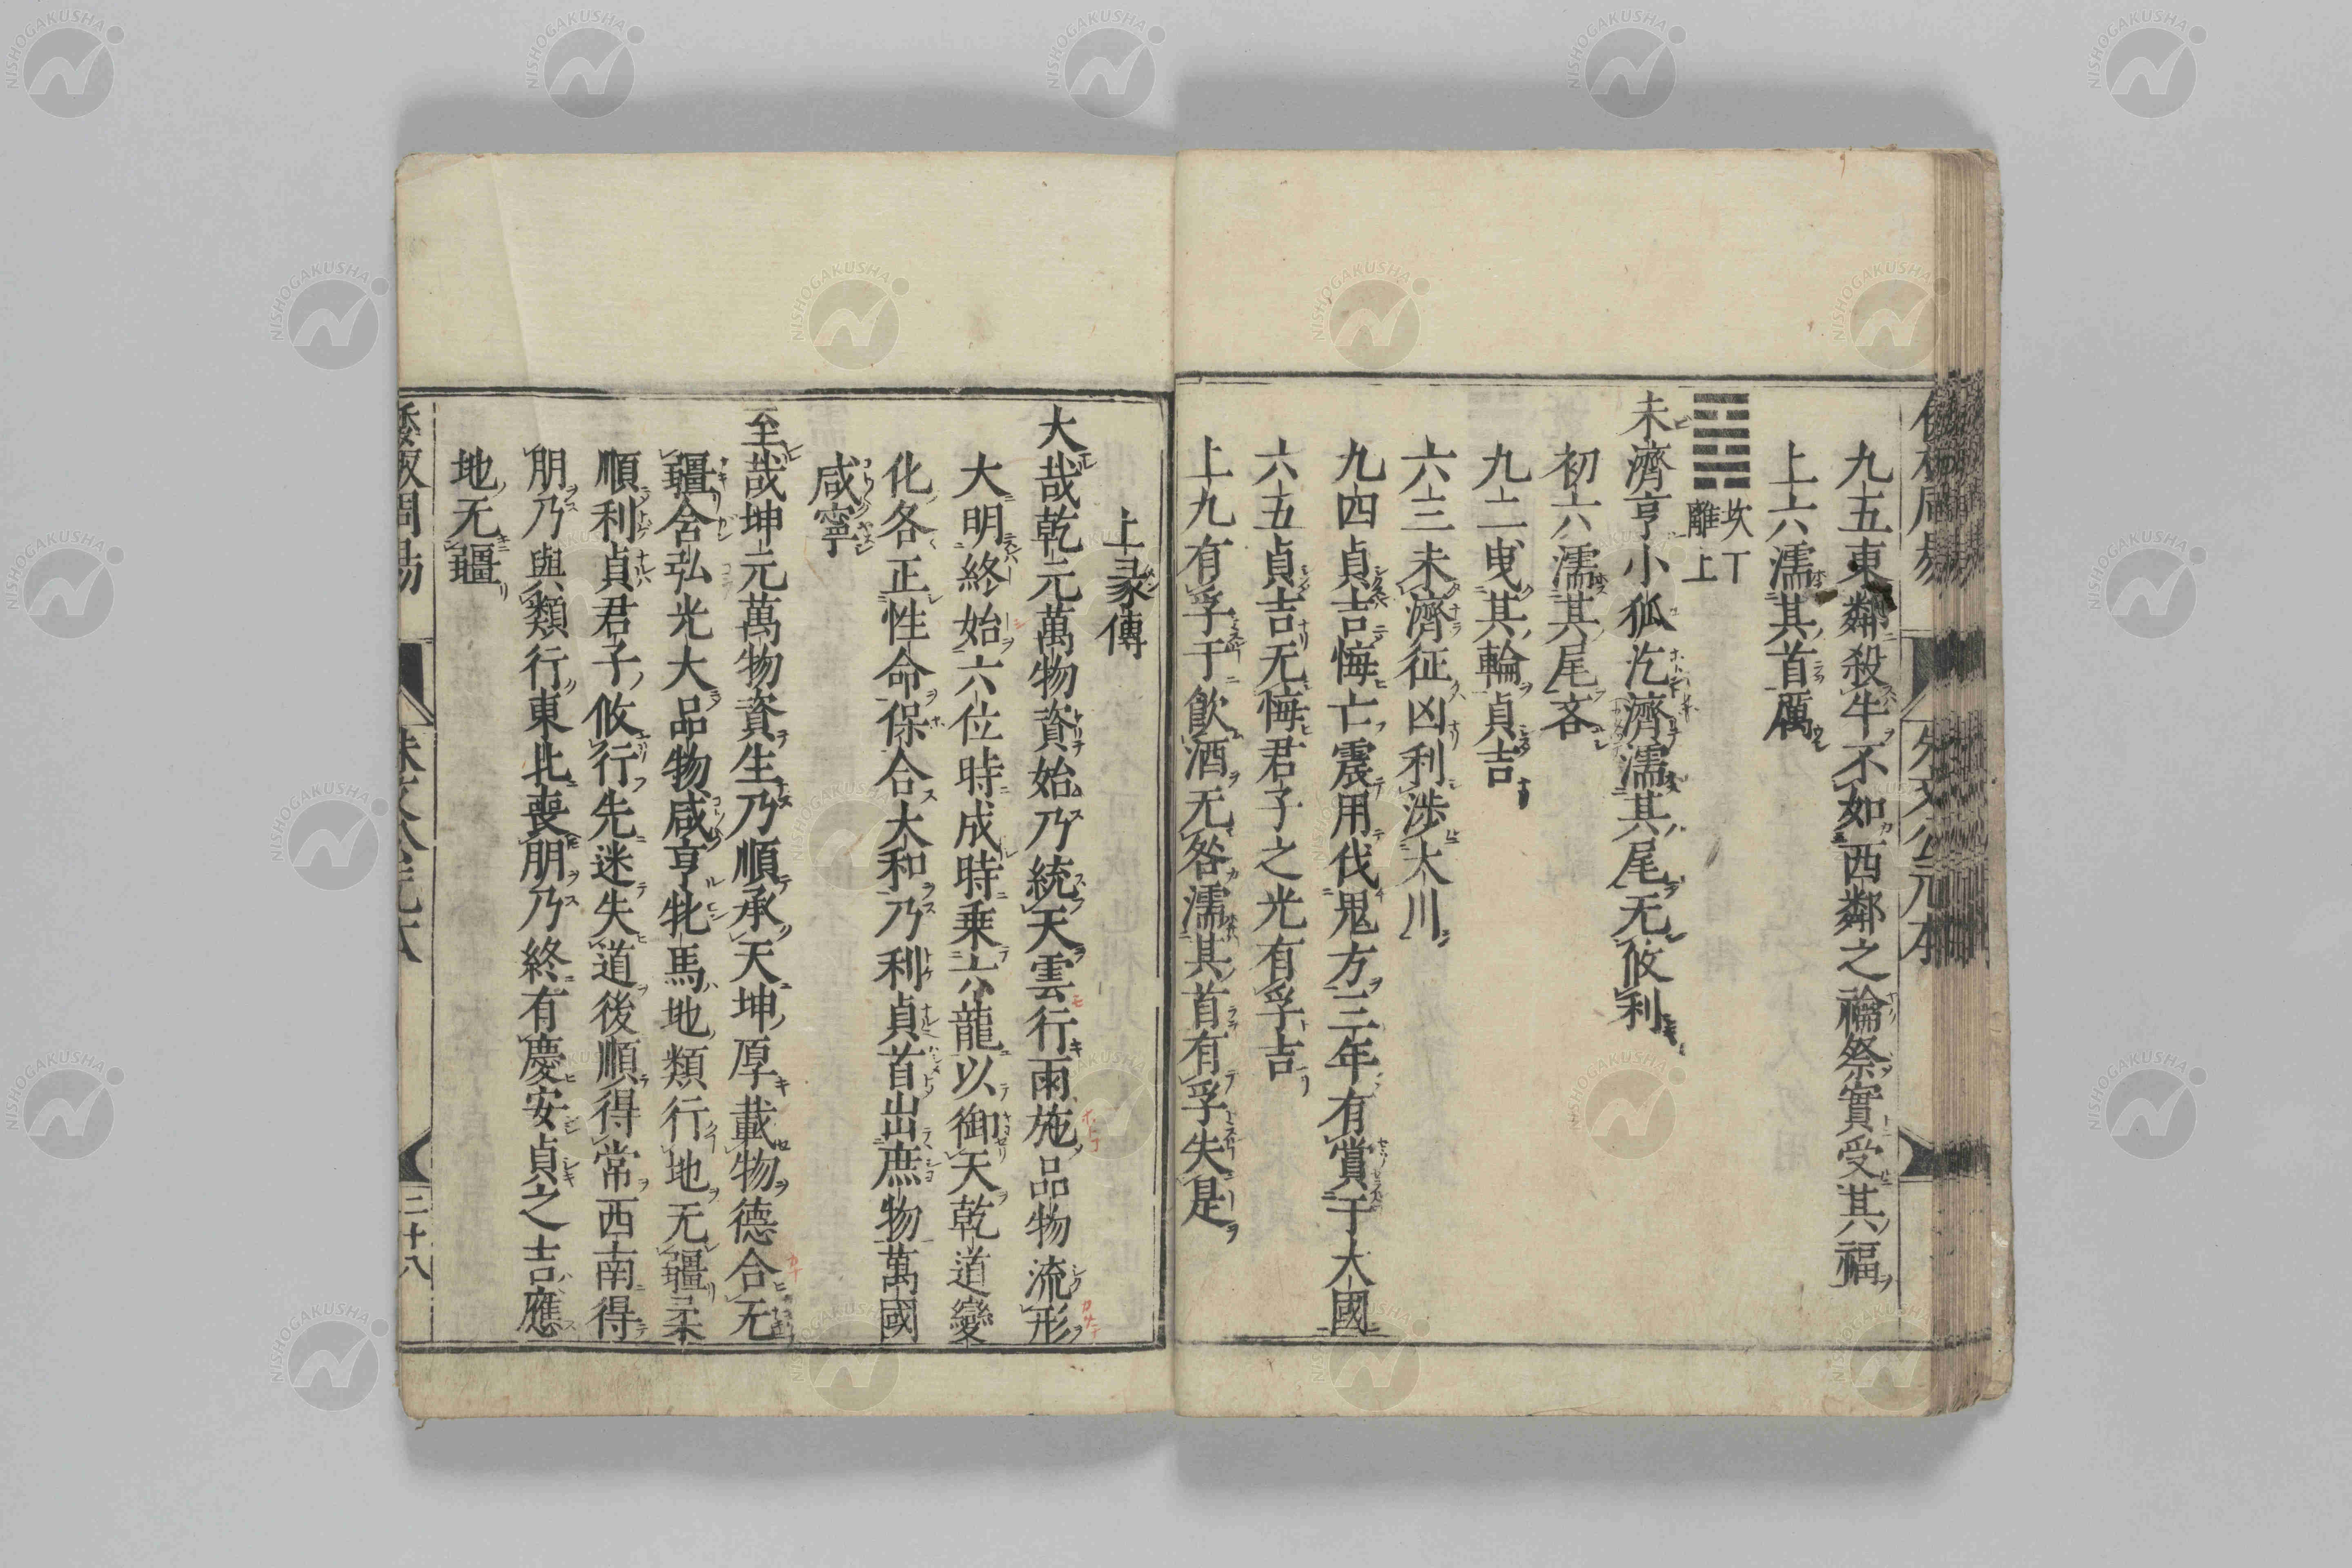 九五東鄰殺牛不如西鄰之禴祭實受其福
上六濡其首厲
坎下
離上
未濟亨小狐汔濟濡其尾无攸利
初六濡其尾吝
九二曳其輪貞吉
六三未濟征凶利涉大川
九四貞吉悔亡震用伐鬼方三年有賞于大國
六五貞吉无悔君子之光有孚吉
上九有孚于飮酒无咎濡其首有孚失是
上彖傳
大哉乾元萬物資始乃統天雲行雨施品物流形
大明終始六位時成時乘六龍以御天乾道變
化各正性命保合大和乃利貞首出庶物萬國
咸寧
至哉坤元萬物資生乃順承天坤厚載物德合无
疆含弘光大品物咸亨牝馬地類行地无疆柔
順利貞君子攸行先迷失道後順得常西南得
朋乃與類行東北喪朋乃終有慶安貞之吉應
地无疆
三十八
NISHOGAKUSHA